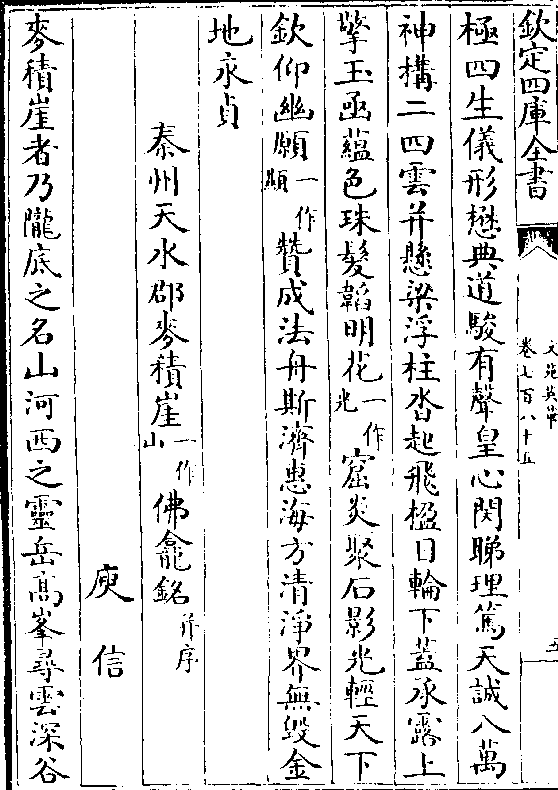 欽定四庫全書
文苑英華
卷七百八十五
五
極四生儀形懋典道駿有聲皇心閔睇理篤天誠八萬
神構二四雲幷懸梁浮柱沓起飛楹日輪下蓋承露上
擎玉函蘊色珠髮韜明花一作光窟炎聚石影光輕天下
欽仰幽願一作顯贊成法舟斯濟惠海方清淨界無毀金
地永貞
秦州天水郡麥積崖一作山佛龕銘幷序
庾信
麥積崖者乃隴底之名山河西之靈岳高峯尋雲深谷